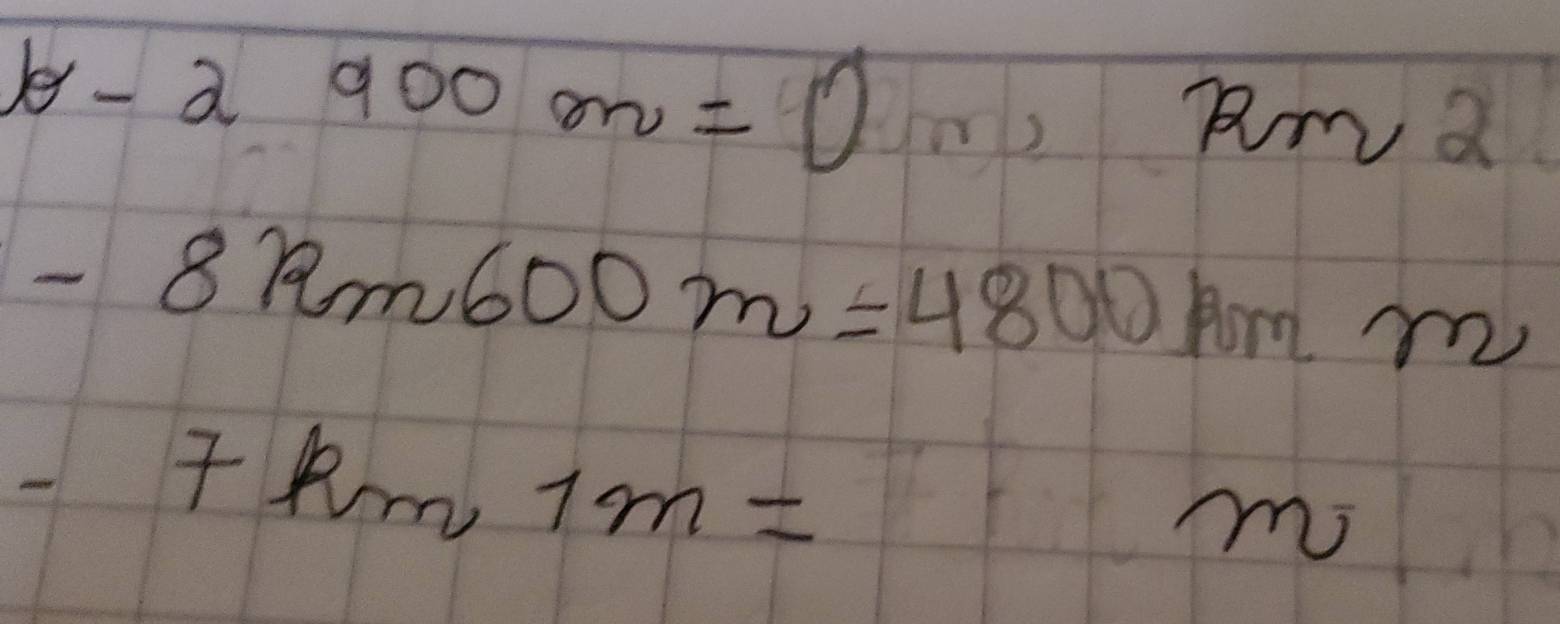 b - 2 900 m = 0 km 2
- 8 km 600 m = 4800 km m
- 7 km 1 m = m